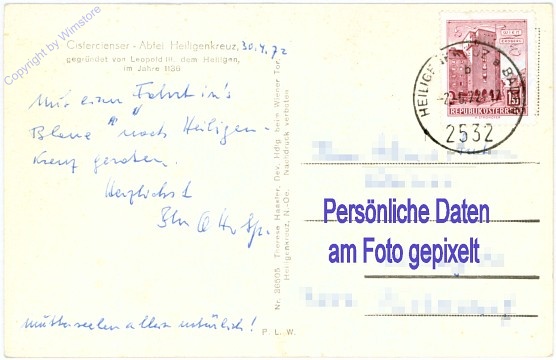 Copyright by Wimstore
Cistercienser - Abtei Heiligenkreuz,
gegründet von Leopold III. dem Heiligen,
im Jahre 1136
30.4.72
Mit einer Fahrt in's
Blaue nach Heiligen-
Kreuz geraten.
Herzlichst
Mutterseelen allein natürlich!
Nr. 30505 Therese Hassler, Dev. Hdlg. beim Wiener Tor
Heiligenkreuz, N.-Oe. Nachdruck verboten
P. L. W.
WIEN
REPUBLIK ÖSTERREICH
HEILIGENKREUZ B BADEN
b
2532
Persönliche Daten
am Foto gepixelt